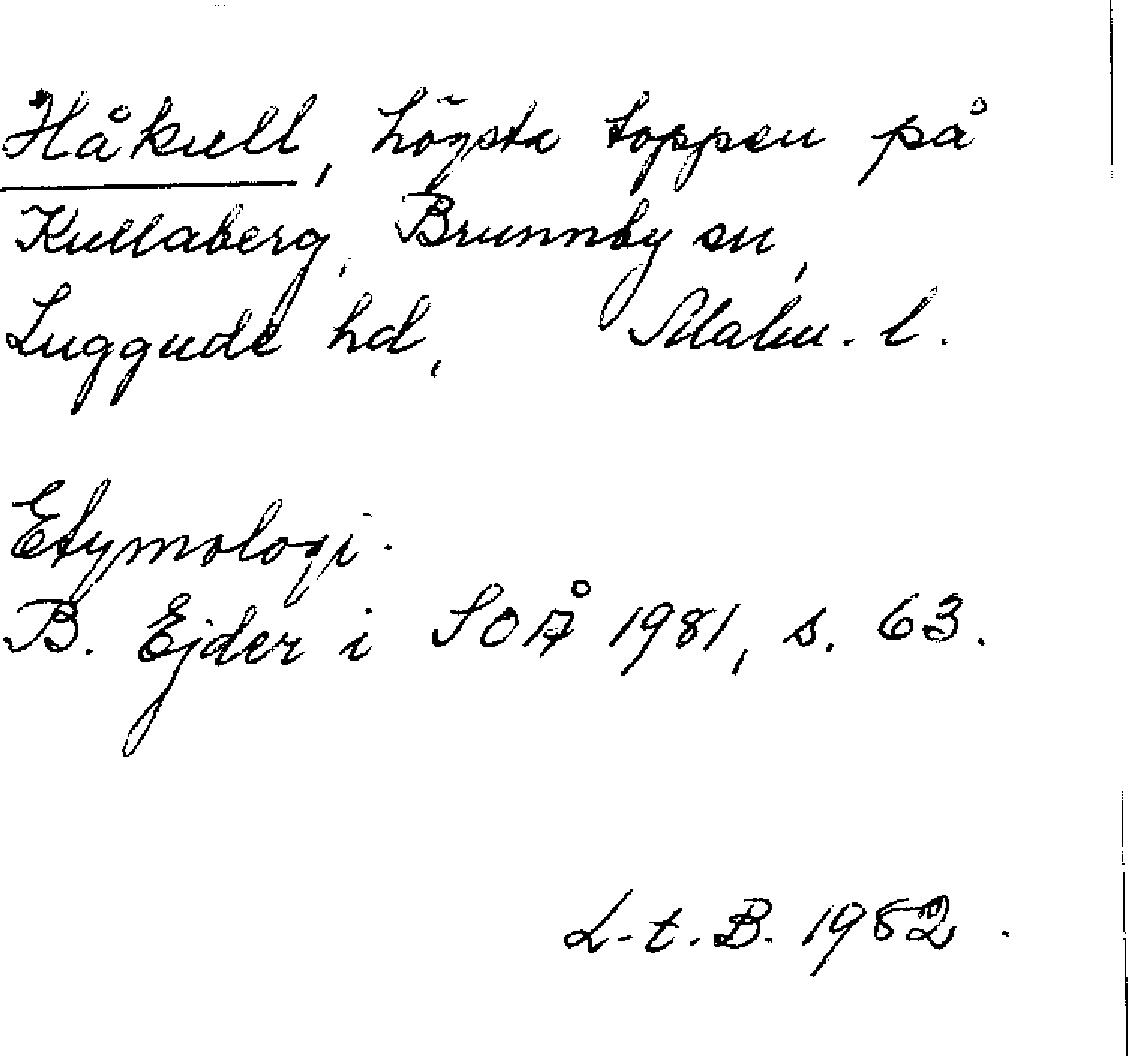 Håkull, högsta toppen på
Kullaberg, Brunnby sn,
Luggude hd, Malm. l.
Etymologi.
B. Ejder i SOÅ 1981, s. 63.
L. t. B. 1982.